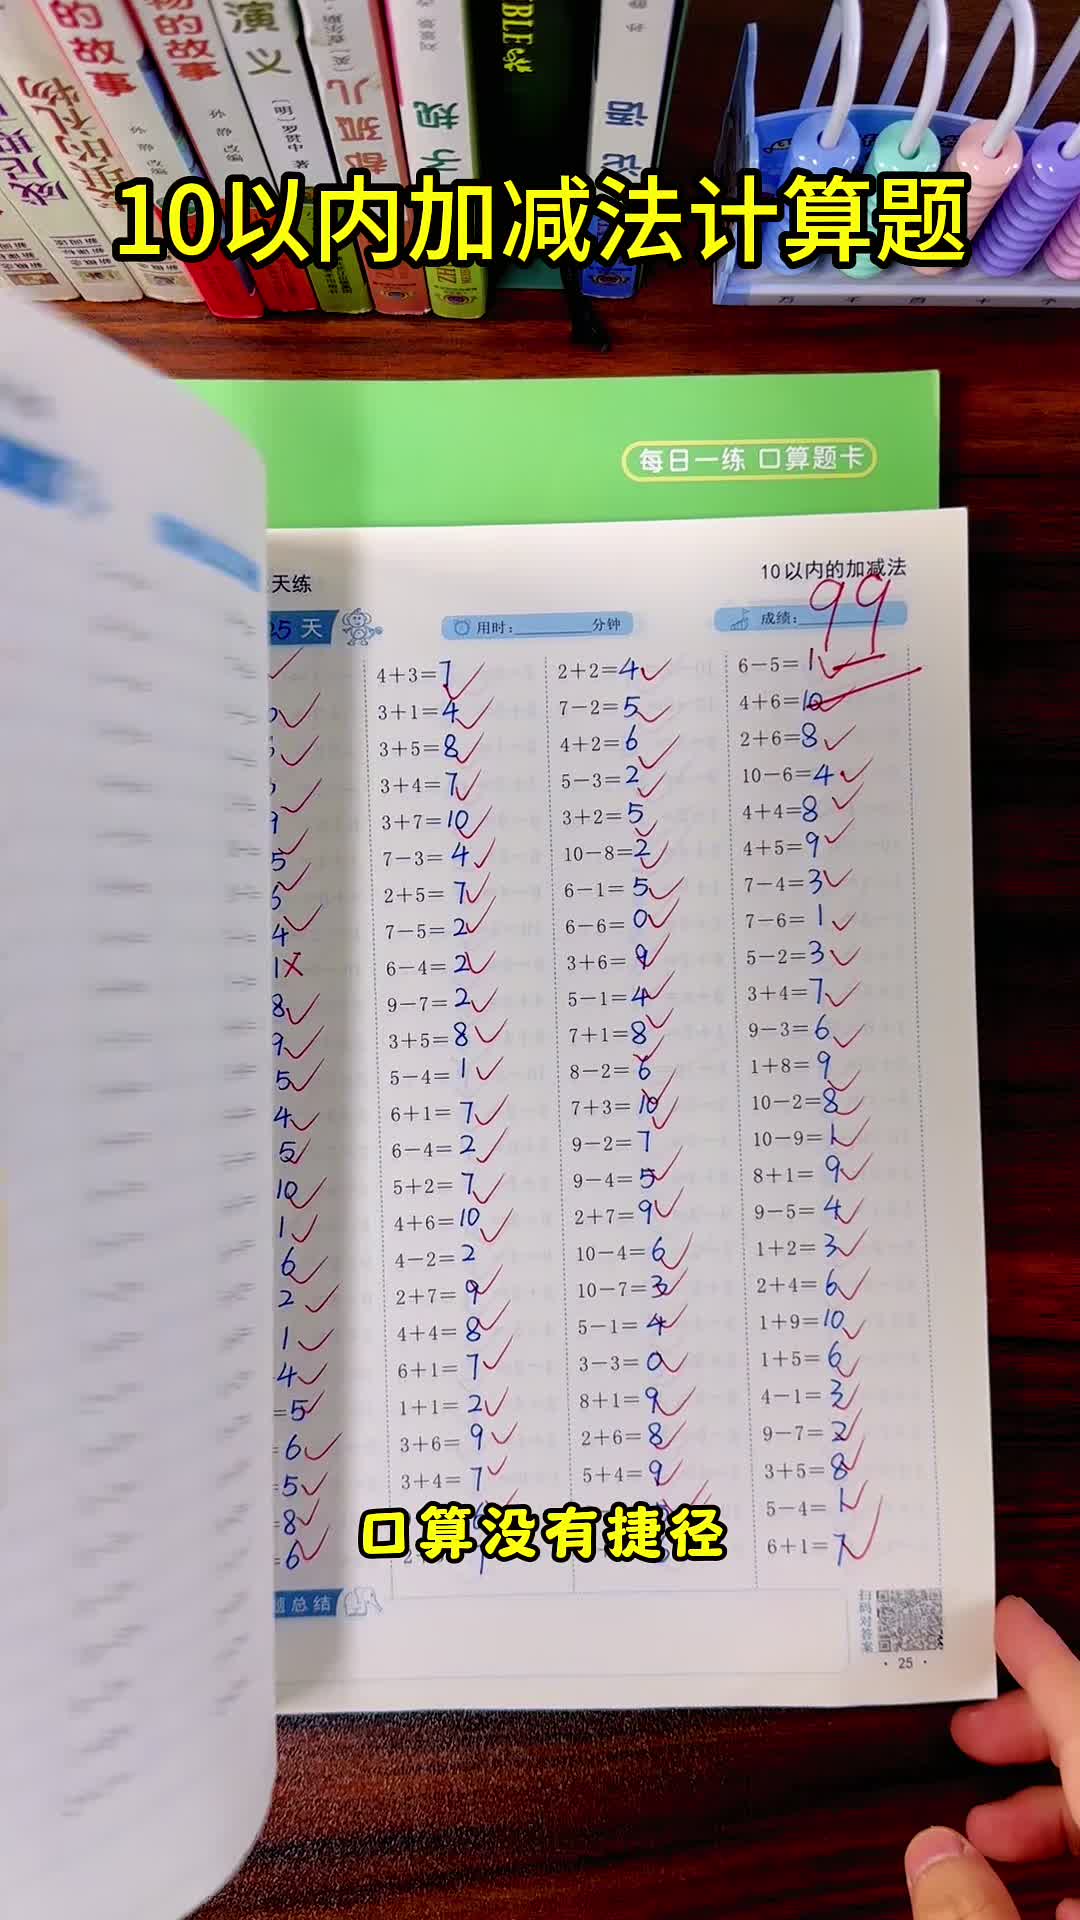 的故事
物的故事
演义
[明]罗贯中 著
孙静 改编
论语
10以内加减法计算题
万 千 百 十 个
每日一练 口算题卡
天练
10以内的加减法
25天
用时: 分钟
成绩: 99
4+3=7 2+2=4 6-5=1
3+1=4 7-2=5 4+6=10
3+5=8 4+2=6 2+6=8
3+4=7 5-3=2 10-6=4
3+7=10 3+2=5 4+4=8
7-3=4 10-8=2 4+5=9
5 2+5=7 6-1=5 7-4=3
4 7-5=2 6-6=0 7-6=1
1 6-4=2 3+6=9 5-2=3
8 9-7=2 5-1=4 3+4=7
9 3+5=8 7+1=8 9-3=6
5 5-4=1 8-2=6 1+8=9
4 6+1=7 7+3=10 10-2=8
5 6-4=2 9-2=7 10-9=1
10 5+2=7 9-4=5 8+1=9
1 4+6=10 2+7=9 9-5=4
6 4-2=2 10-4=6 1+2=3
2 2+7=9 10-7=3 2+4=6
1 4+4=8 5-1=4 1+9=10
4 6+1=7 3-3=0 1+5=6
=5 1+1=2 8+1=9 4-1=3
=6 3+6=9 2+6=8 9-7=2
=5 3+4=7 5+4=9 3+5=8
=8 5-4=1
=6 6+1=7
口算没有捷径
题总结
扫码对答案
·25·